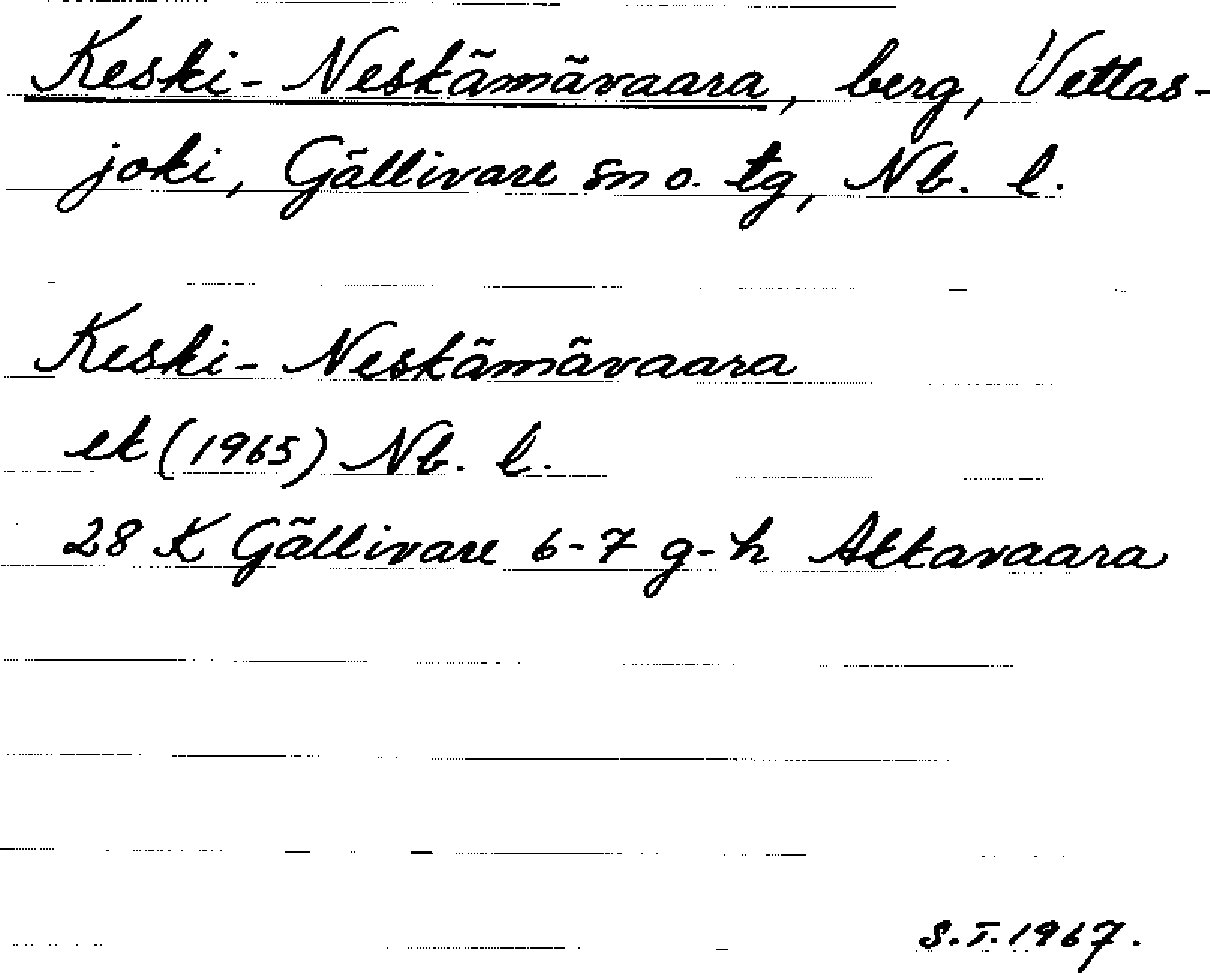 Keski-Neskämävaara, berg, Vettas-
joki, Gällivare sn o. tg, Nb. l.
Keski-Neskämävaara
ek (1965) Nb. l.
28 K Gällivare 6-7 g-h Akkavaara
S.T. 1967.